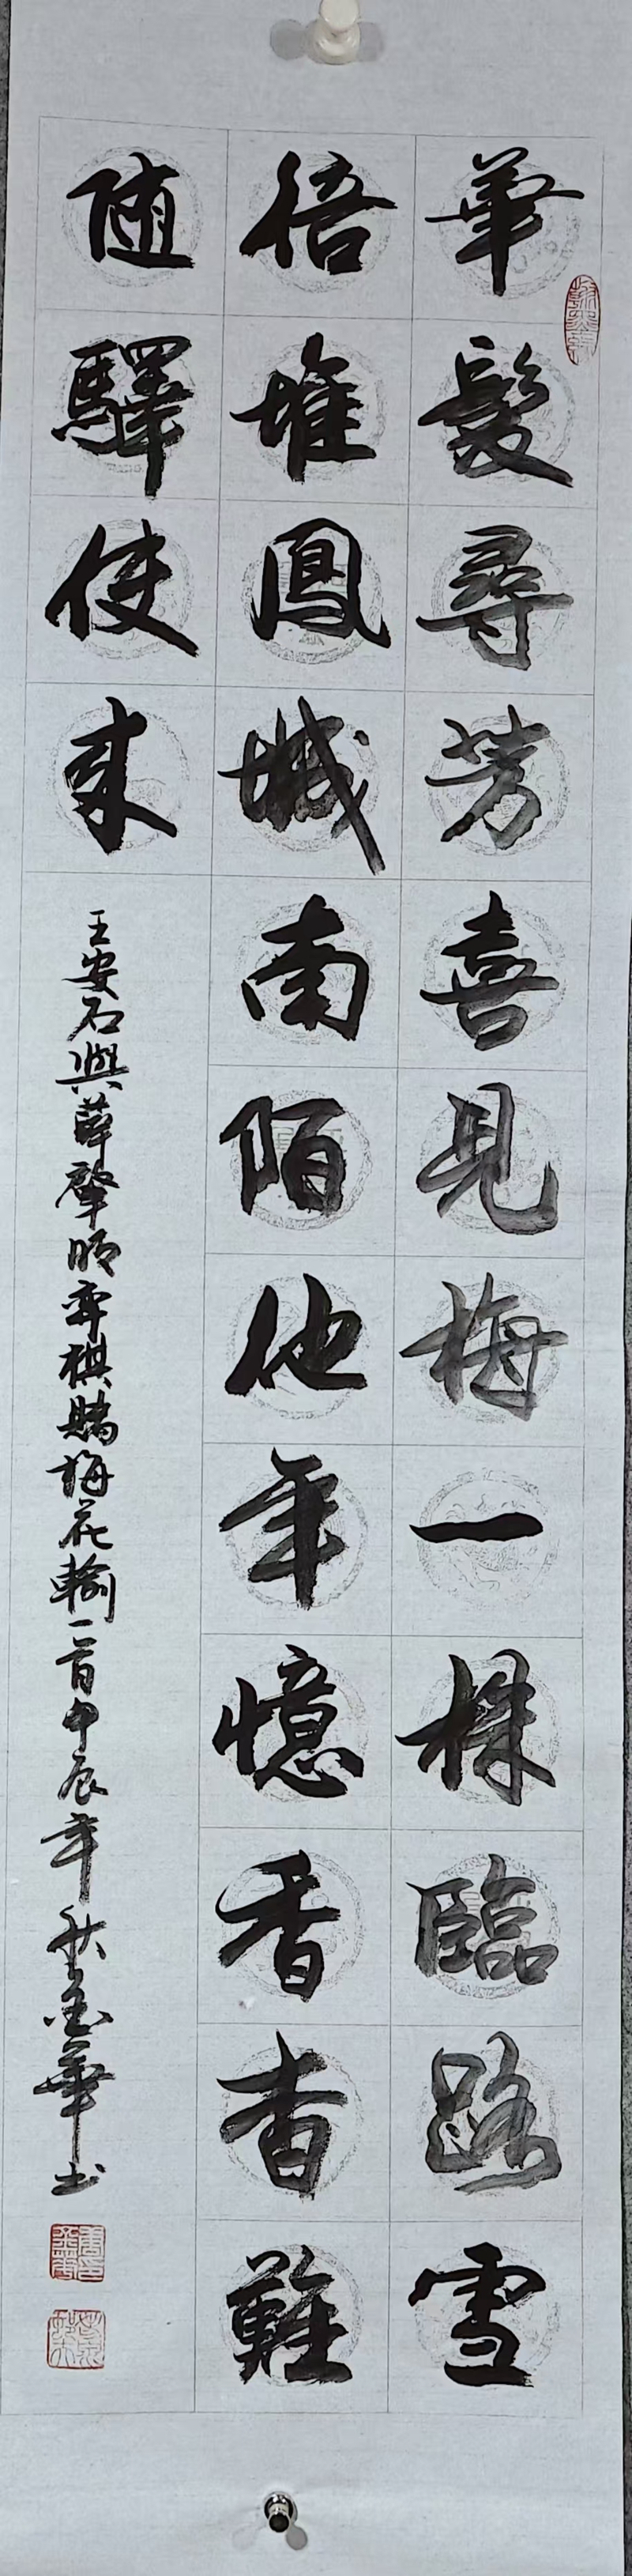 華髮尋芳喜見梅一株臨路雪
倍堆鳳城南陌他年憶香杳難
随驛使来
王安石與薛肇明弈棋賭梅花輸一首甲辰年秋金華书